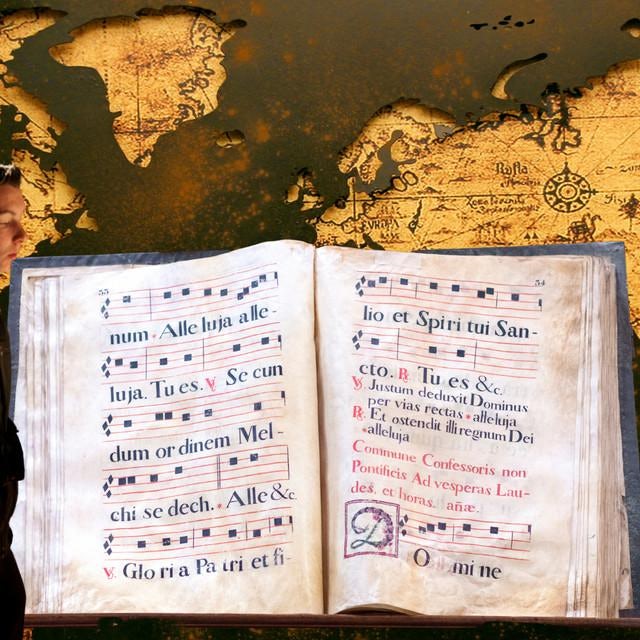 EVROPA
33
num Alle luja alle-
luja. Tu es. ℣. Se cun
dum or dinem Mel-
chi se dech. * Alle &c.
℣. Glo ri a Pa tri et fi-
34
lio et Spiri tui San-
cto. ℟. Tu es &c.
℣. Justum deduxit Dominus
per vias rectas * alleluja
℟. Et ostendit illi regnum Dei
* alleluja
Commune Confessoris non
Pontificis Ad vesperas Lau-
des, et horas. añæ.
D O mi ne